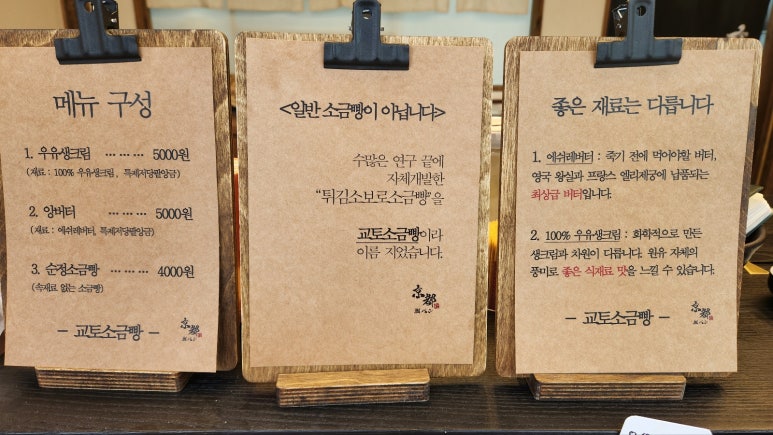 메뉴 구성
1. 우유생크림 ········· 5000원
(재료 : 100% 우유생크림, 특제저당팥앙금)
2. 앙버터 ········· 5000원
(재료 : 에쉬레버터, 특제저당팥앙금)
3. 순정소금빵 ········· 4000원
(속재료 없는 소금빵)
- 교토소금빵 -
京都
<일반 소금빵이 아닙니다>
수많은 연구 끝에
자체개발한
“튀김소보로소금빵”을
교토소금빵이라
이름 지었습니다.
京都
좋은 재료는 다릅니다
1. 에쉬레버터 : 죽기 전에 먹어야할 버터,
영국 왕실과 프랑스 엘리제궁에 납품되는
최상급 버터입니다.
2. 100% 우유생크림 : 화학적으로 만든
생크림과 차원이 다릅니다. 원유 자체의
풍미로 좋은 식재료 맛을 느낄 수 있습니다.
- 교토소금빵 -
京都